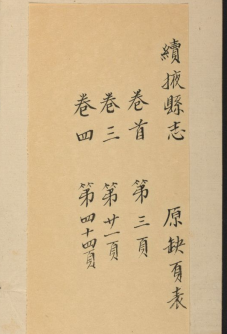 續掖縣志　原缺頁表
卷首　第三頁
卷三　第廿一頁
卷四　第四十四頁